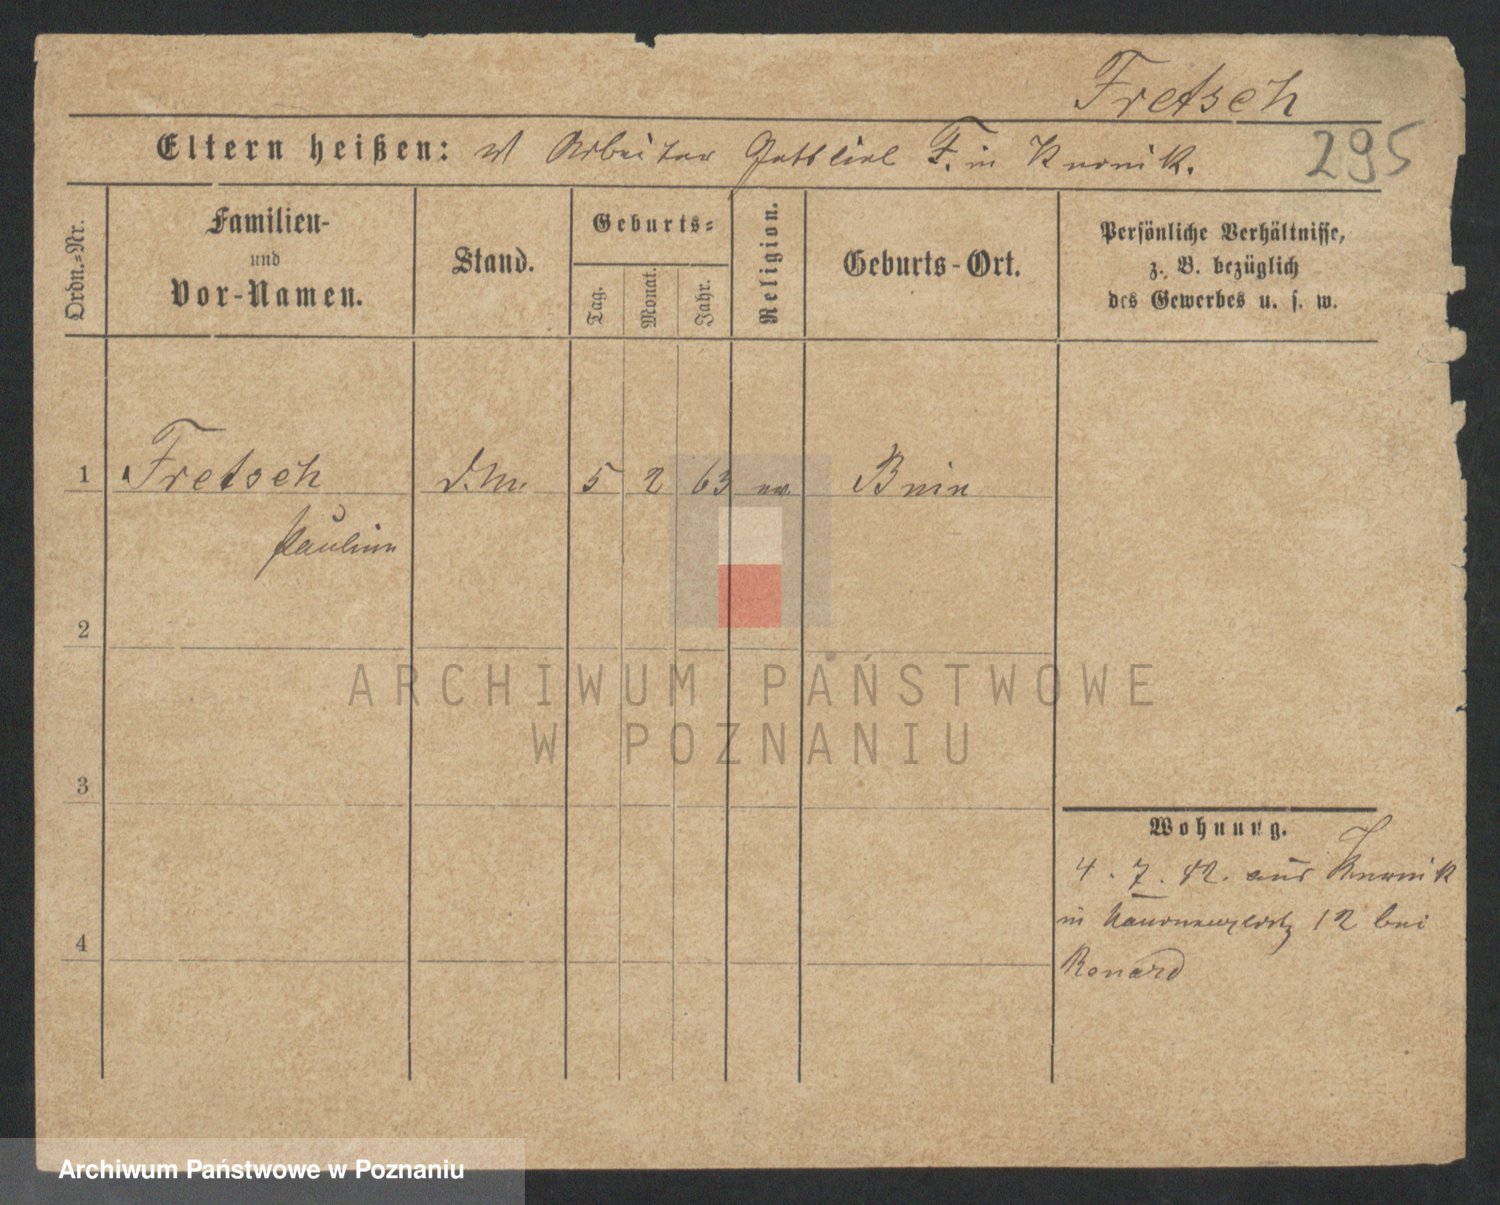 Fretsch
Eltern heißen: Arbeiter Gottlieb F. in Kurnik.
295
Ordn.-Nr.
Familien-
und
Vor-Namen.
Stand.
Geburts-
Tag.
Monat.
Jahr.
Religion.
Geburts-Ort.
Persönliche Verhältnisse,
z. B. bezüglich
des Gewerbes u. s. w.
1 Fretsch 5 2 63 ev. Bnin
Pauline
2
3
4
Wohnung.
4. 7. 82. aus Kurnik
in 12 bei
Ronard
ARCHIWUM PAŃSTWOWE
W POZNANIU
Archiwum Państwowe w Poznaniu